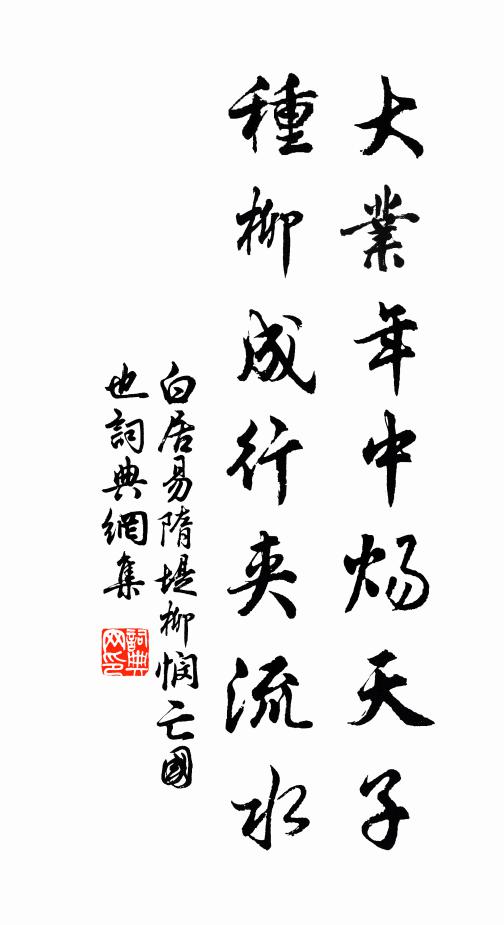 大業年中煬天子
種柳成行夾流水
白居易隋堤柳憫亡國
也詞典網集
詞典網印